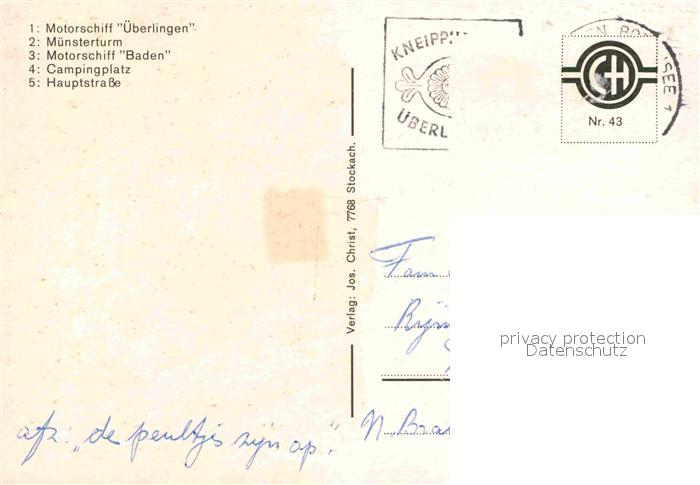 1: Motorschiff "Überlingen"
2: Münsterturm
3: Motorschiff "Baden"
4: Campingplatz
5: Hauptstraße
KNEIPP
ÜBERL
EN BO
SEE 1
CH
Nr. 43
Verlag: Jos. Christ, 7768 Stockach.
Fam
Rijn
privacy protection
Datenschutz
N. Bra
afz: „de peultjes zijn op".